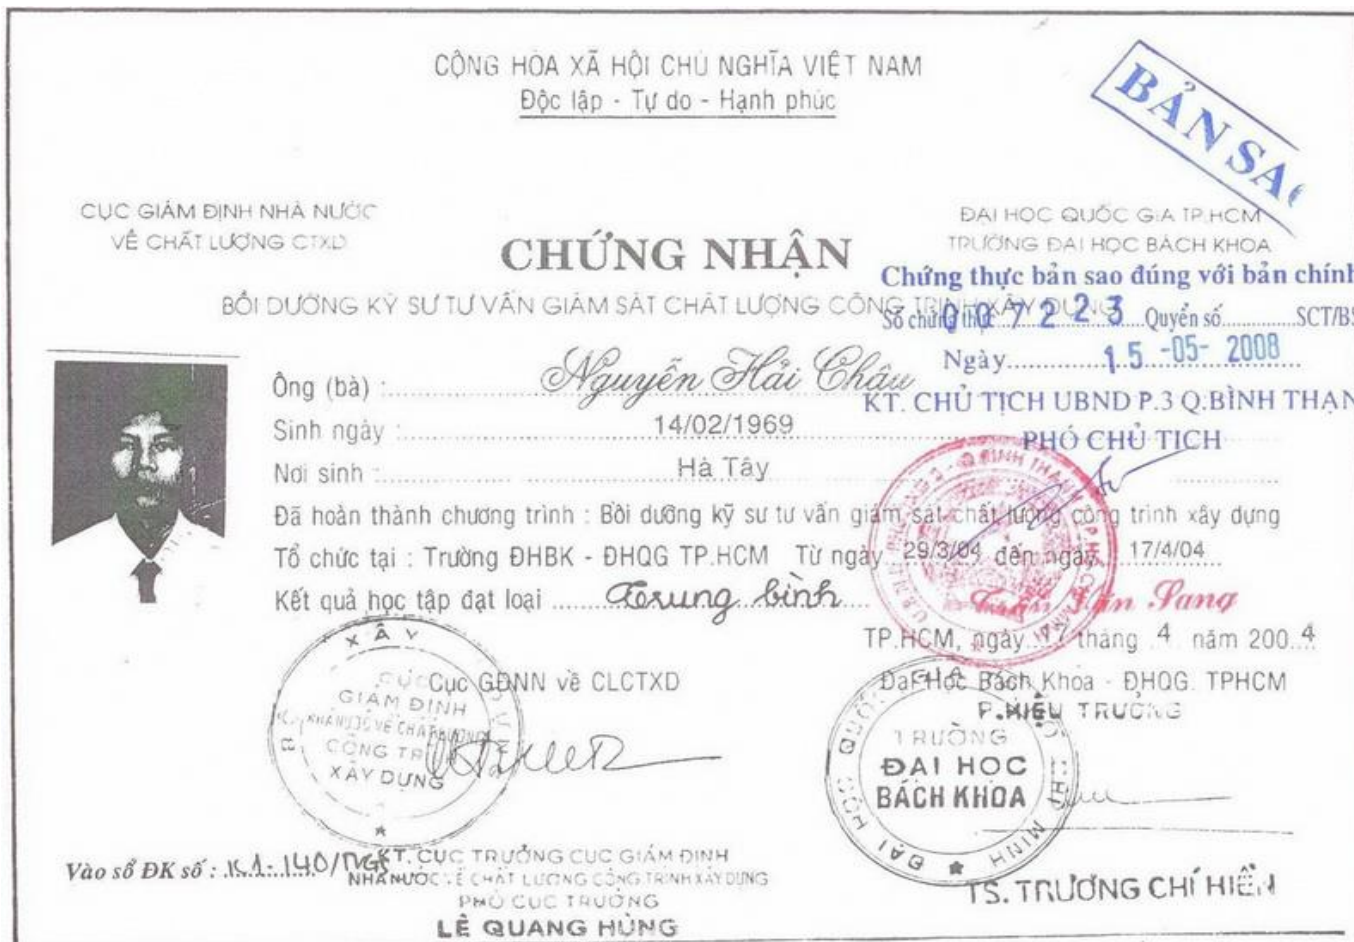 CỘNG HÒA XÃ HỘI CHỦ NGHĨA VIỆT NAM
Độc lập - Tự do - Hạnh phúc
BẢN SAO
CỤC GIÁM ĐỊNH NHÀ NƯỚC
VỀ CHẤT LƯỢNG CTXD
ĐẠI HỌC QUỐC GIA TP.HCM
TRƯỜNG ĐẠI HỌC BÁCH KHOA
CHỨNG NHẬN
Chứng thực bản sao đúng với bản chính
BỒI DƯỠNG KỸ SƯ TƯ VẤN GIÁM SÁT CHẤT LƯỢNG CÔNG TRÌNH XÂY DỰNG
Số chứng thực 007223 Quyển số SCT/BS
Ngày 15-05-2008
Ông (bà) : Nguyễn Hải Châu
KT. CHỦ TỊCH UBND P.3 Q.BÌNH THẠN
Sinh ngày : 14/02/1969
PHÓ CHỦ TỊCH
Nơi sinh : Hà Tây
Đã hoàn thành chương trình : Bồi dưỡng kỹ sư tư vấn giám sát chất lượng công trình xây dựng
Tổ chức tại : Trường ĐHBK - ĐHQG TP.HCM Từ ngày 29/3/04 đến ngày 17/4/04
Kết quả học tập đạt loại Trung bình
Sang
TP.HCM, ngày 17 tháng 4 năm 2004
Cục GĐNN về CLCTXD
Đại Học Bách Khoa - ĐHQG. TPHCM
P.HIỆU TRƯỞNG
XÂY
CỤC
GIÁM ĐỊNH
NHÀ NƯỚC VỀ CHẤT LƯỢNG
CÔNG TRÌNH
XÂY DỰNG
TRƯỜNG
ĐẠI HỌC
BÁCH KHOA
Vào sổ ĐK số : K1-140/TVGS
KT. CỤC TRƯỞNG CỤC GIÁM ĐỊNH
NHÀ NƯỚC VỀ CHẤT LƯỢNG CÔNG TRÌNH XÂY DỰNG
PHÓ CỤC TRƯỞNG
LÊ QUANG HÙNG
TS. TRƯƠNG CHÍ HIỀN